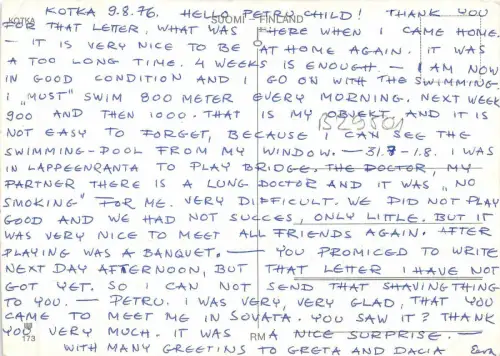 KOTKA 9.8.76. HELLO, PETRU CHILD! THANK YOU
KOTKA SUOMI - FINLAND
FOR THAT LETTER, WHAT WAS THERE WHEN I CAME HOME.
— IT IS VERY NICE TO BE AT HOME AGAIN. IT WAS
A TOO LONG TIME. 4 WEEKS IS ENOUGH. — I AM NOW
IN GOOD CONDITION AND I GO ON WITH THE SWIMMING.
I „MUST" SWIM 800 METER EVERY MORNING. NEXT WEEK
900 AND THEN 1000. THAT IS MY OBJEKT AND IT IS
NOT EASY TO FORGET, BECAUSE I CAN SEE THE
SWIMMING-POOL FROM MY WINDOW. — 31.7 - 1.8. I WAS
IN LAPPEENRANTA TO PLAY BRIDGE. THE DOCTOR, MY
PARTNER THERE IS A LUNG DOCTOR AND IT WAS „NO
SMOKING" FOR ME. VERY DIFFICULT. WE DID NOT PLAY
GOOD AND WE HAD NOT SUCCES, ONLY LITTLE. BUT IT
WAS VERY NICE TO MEET ALL FRIENDS AGAIN. AFTER
PLAYING WAS A BANQUET. — YOU PROMICED TO WRITE
NEXT DAY AFTERNOON, BUT THAT LETTER I HAVE NOT
GOT YET. SO I CAN NOT SEND THAT SHAVINGTHING
TO YOU. — PETRU. I WAS VERY, VERY GLAD, THAT YOU
CAME TO MEET ME IN SOVATA. YOU SAW IT? THANK
YOU VERY MUCH. IT WAS A NICE SURPRISE. —
173 RM
WITH MANY GREETINS TO GRETA AND DACIA